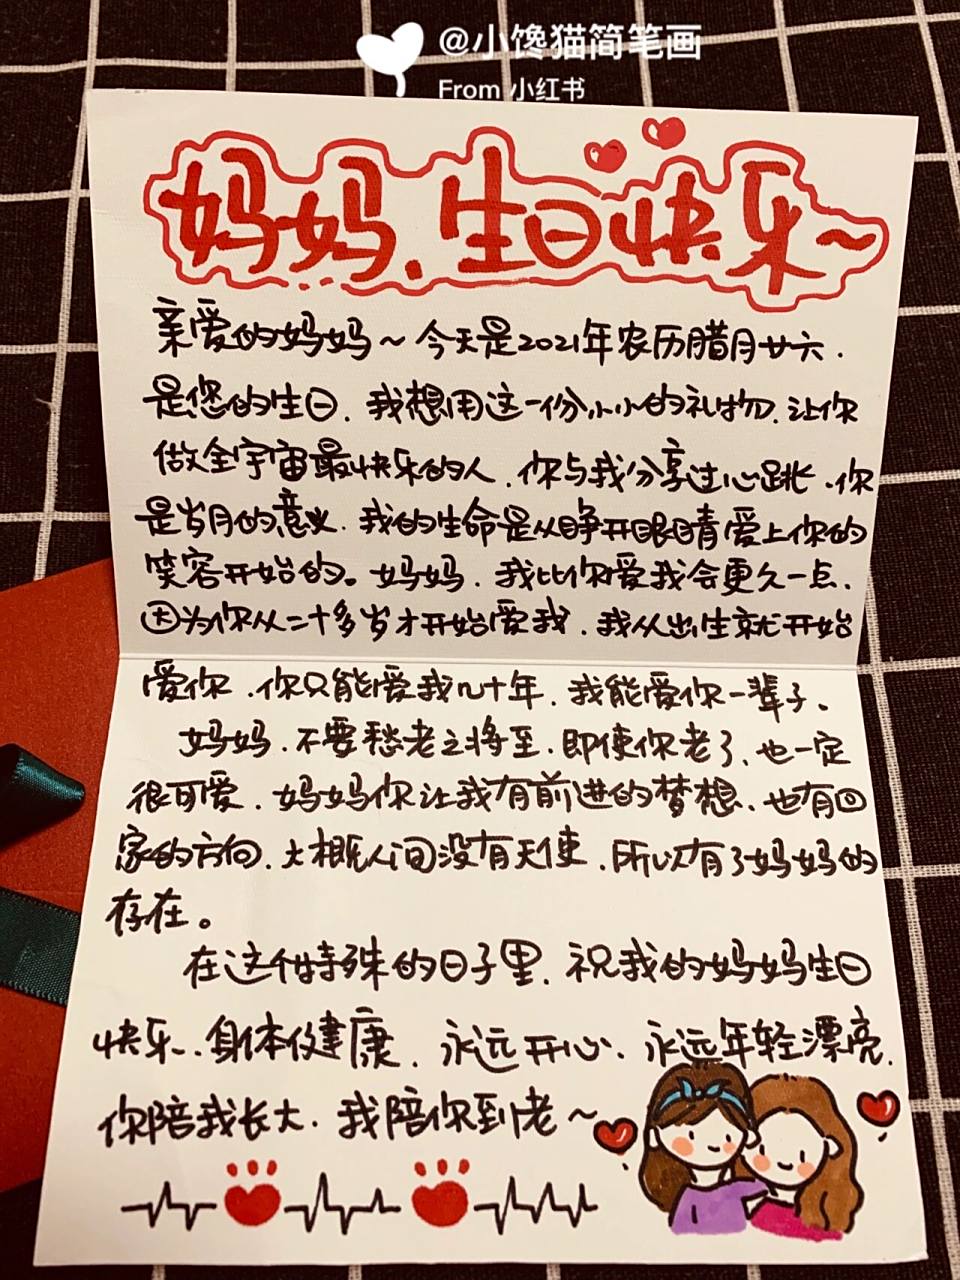 @小馋猫简笔画
From 小红书
妈妈.生日快乐~
亲爱的妈妈~今天是2021年农历腊月廿六.
是您的生日.我想用这一份小小的礼物.让你
做全宇宙最快乐的人.你与我分享过心跳.你
是岁月的意义.我的生命是从睁开眼睛爱上你的
笑容开始的。妈妈.我比你爱我会更久一点.
因为你从二十多岁才开始爱我.我从出生就开始
爱你.你只能爱我几十年.我能爱你一辈子。
妈妈.不要愁老之将至.即使你老了.也一定
很可爱.妈妈你让我有前进的梦想.也有回
家的方向.大概人间没有天使.所以有了妈妈的
存在。
在这个特殊的日子里.祝我的妈妈生日
快乐.身体健康.永远开心.永远年轻漂亮.
你陪我长大.我陪你到老~